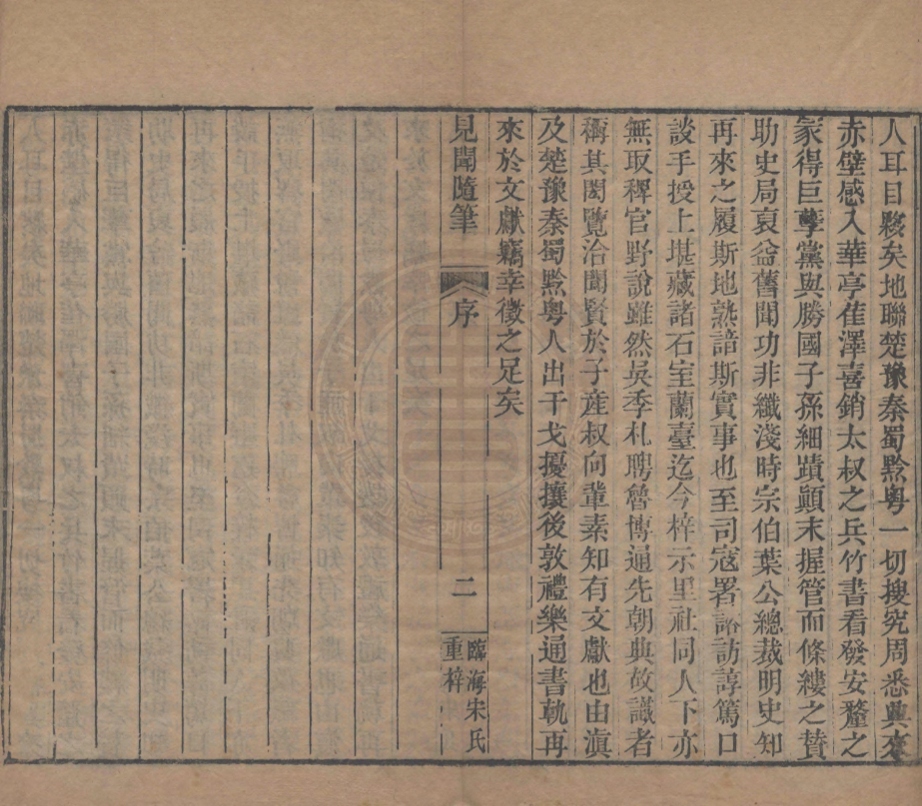 人耳目夥矣地聯楚豫秦蜀黔粤一切搜究周悉與來
赤壁感入華亭隹澤喜銷太叔之兵竹書看發安釐之
冢得巨孽黨與勝國子孫細蹟顚末握管而條縷之贊
助史局裒益舊聞功非纖淺時宗伯葉公總裁明史知
再來之履斯地熟諳斯實事也至司寇署諮訪諄篤口
談手授上堪藏諸石室蘭臺迄今梓示里社同人下亦
無取稗官野說雖然吳季札聘魯博通先朝典故識者
稱其閎覽洽聞賢於子産叔向輩素知有文獻也由滇
及楚豫秦蜀黔粤人出干戈擾攘後敦禮樂通書軌再
來於文獻竊幸徵之足矣
見聞隨筆 序 二 臨海宋氏
重梓